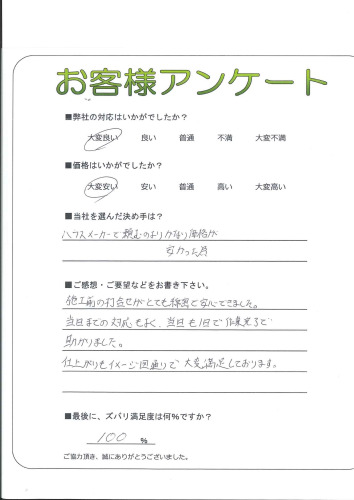 お客様アンケート
■弊社の対応はいかがでしたか？
大変良い 良い 普通 不満 大変不満
■価格はいかがでしたか？
大変安い 安い 普通 高い 大変高い
■当社を選んだ決め手は？
ハウスメーカーで頼むのよりかなり価格が
安かった為
■ご感想・ご要望などをお書き下さい。
施工前の打合せがとても綿密で安心できました。
当日までの対応もよく、当日も1日で作業完了で
助かりました。
仕上がりもイメージ図通りで大変満足しております。
■最後に、ズバリ満足度は何%ですか？
100 %
ご協力頂き、誠にありがとうございました。